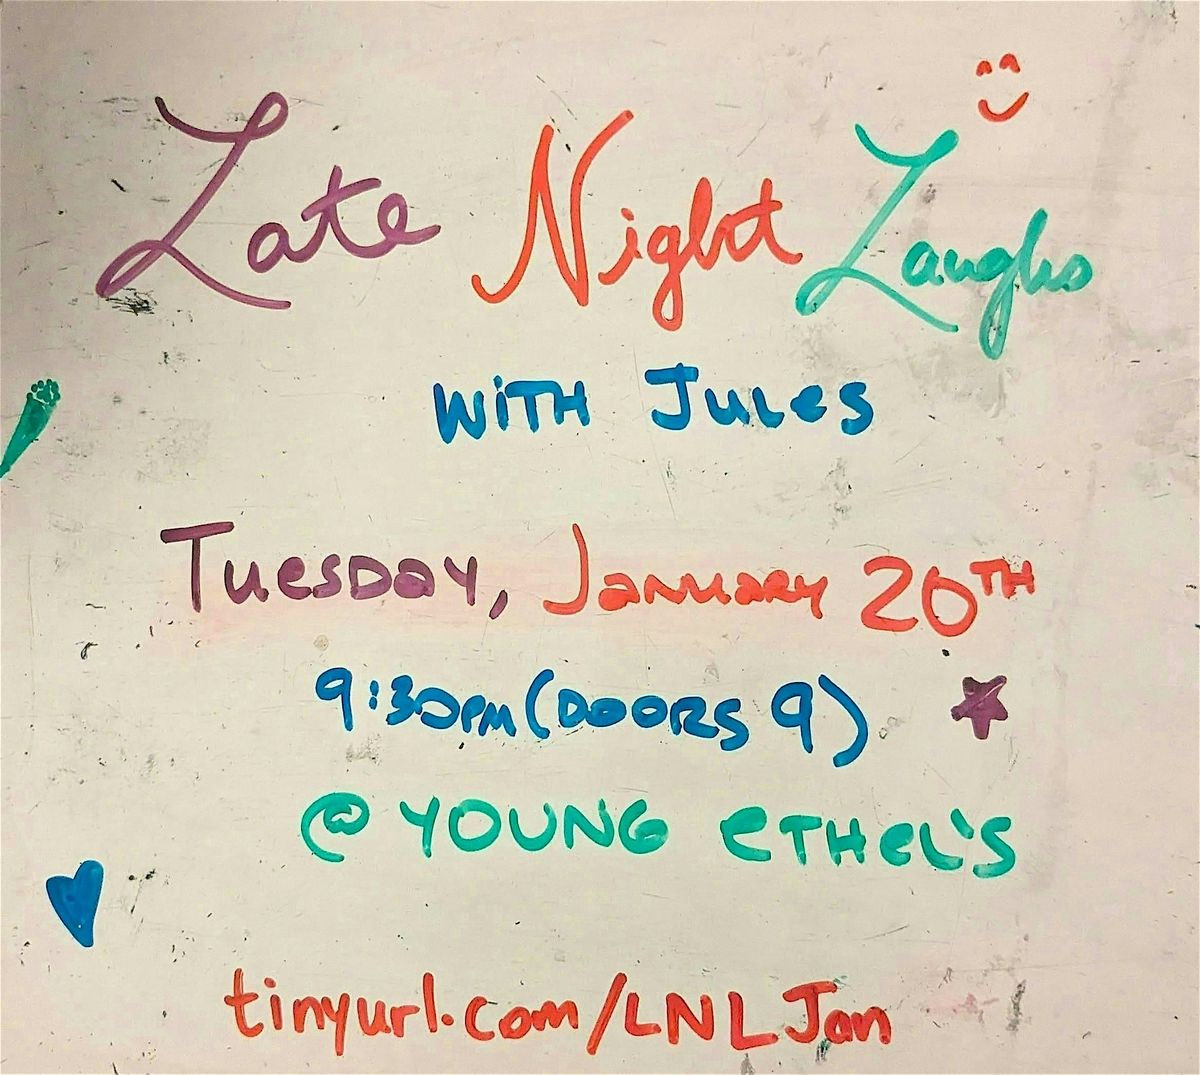 Late Night Laughs
WiTH JULes
TuesDay, January 20TH
9:30PM (DOORS 9)
@ YOUNG eTHeL'S
tinyurl.com/LNLJan